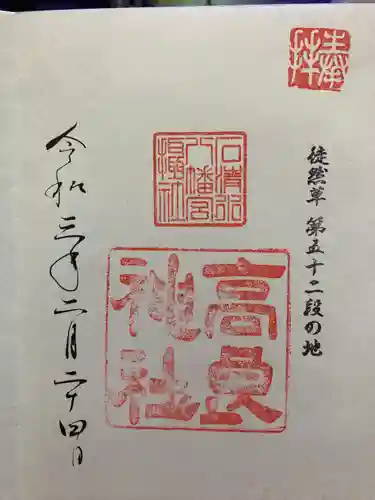 奉拝
徒然草 第五十二段の地
石清水
八幡宮
摂社
高良
神社
令和三年二月二十四日